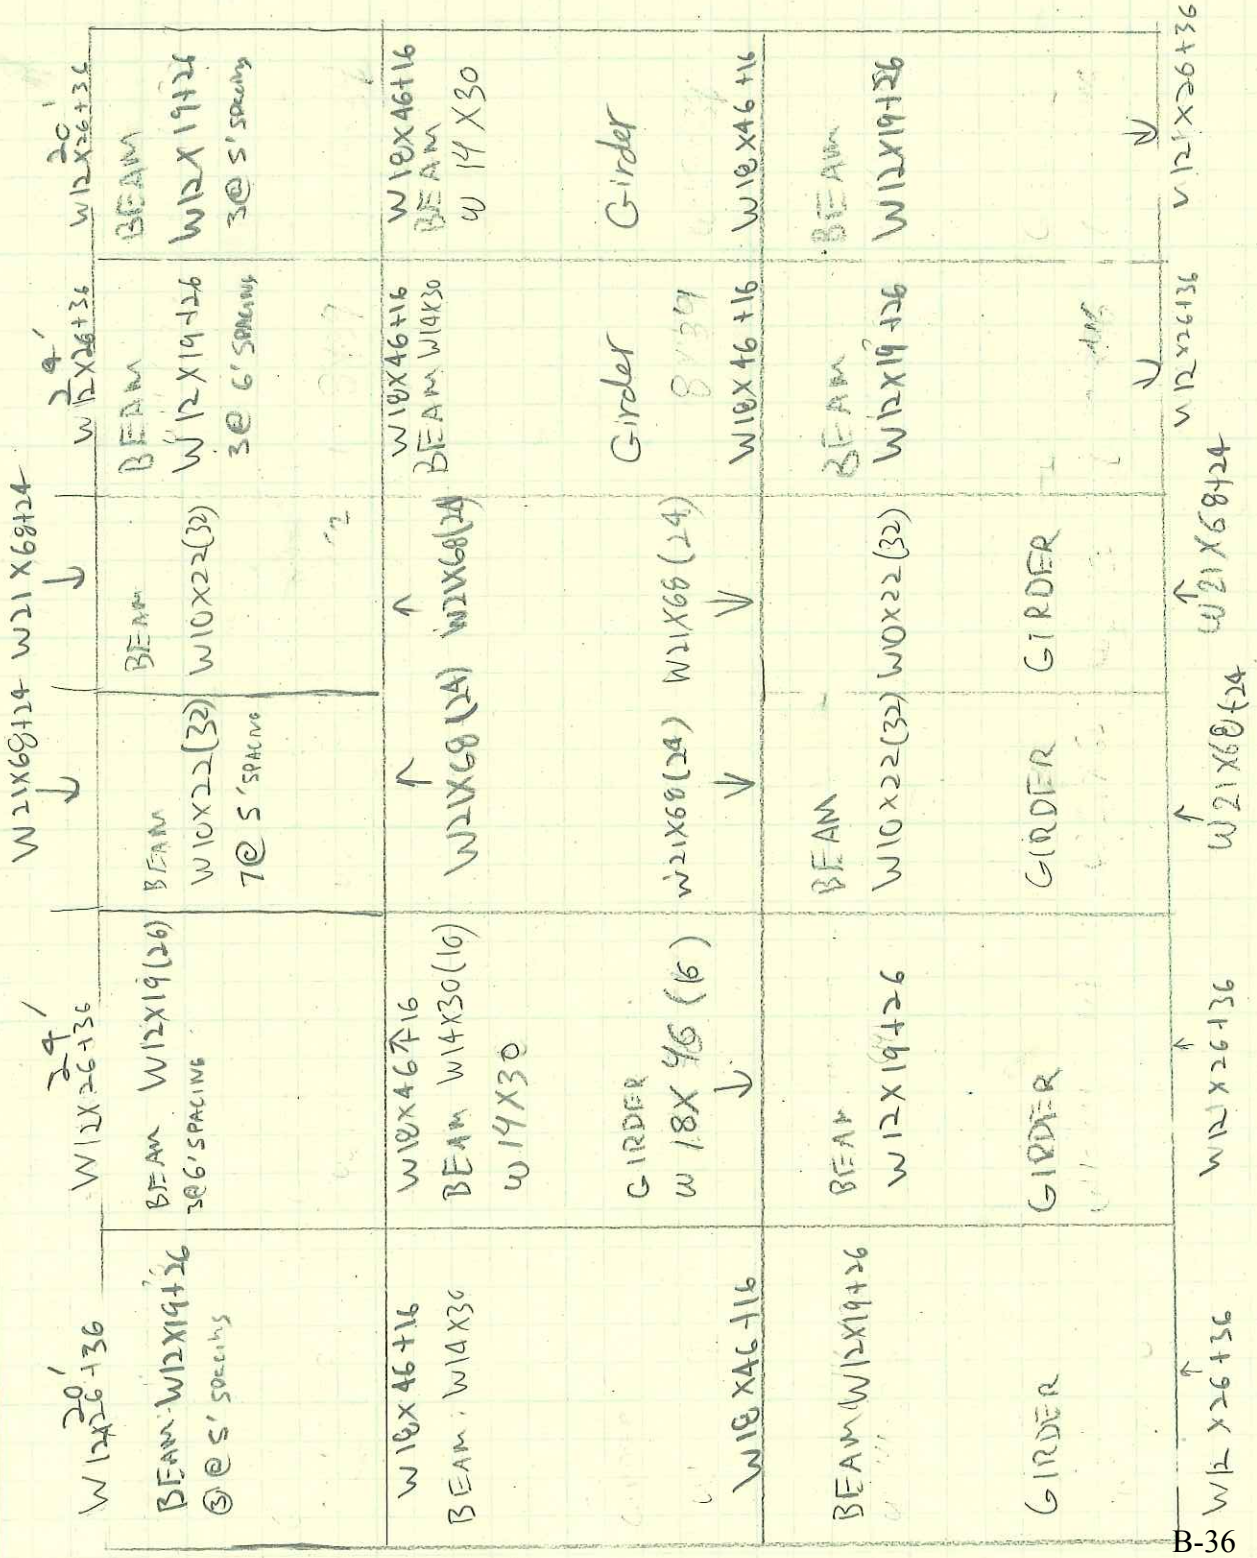 W21X68+24 W21X68+24
20' 24' 24' 20'
W12X26+36 W12X26+36 W12X26+36 W12X26+36
BEAM: W12X19+26
③@5' SPACING
BEAM W12X19(26)
3@6'SPACING
BEAM
W10X22(32)
7@ 5'SPACING
BEAM
W10X22(32)
BEAM
W12X19+26
3@ 6'SPACING
BEAM
W12X19+26
3@ 5'SPACING
W18X46+16
BEAM: W14X30
W18X46+16
BEAM W14X30(16)
W14X30
W21X68(24) W21X68(24)
W18X46+16
BEAM W14X30
W18X46+16
BEAM
W14X30
GIRDER
W18X46(16)
W21X68(24) W21X68(24)
Girder
Girder
W18X46+16
W18X46+16
W18X46+16
BEAM W12X19+26
BEAM
W12X19+26
BEAM
W10X22(32)
W10X22(32)
BEAM
W12X19+26
BEAM
W12X19+26
GIRDER GIRDER GIRDER GIRDER
W12X26+36 W12X26+36 W12X26+36 W12X26+36
W21X68+24 W21X68+24
B-36